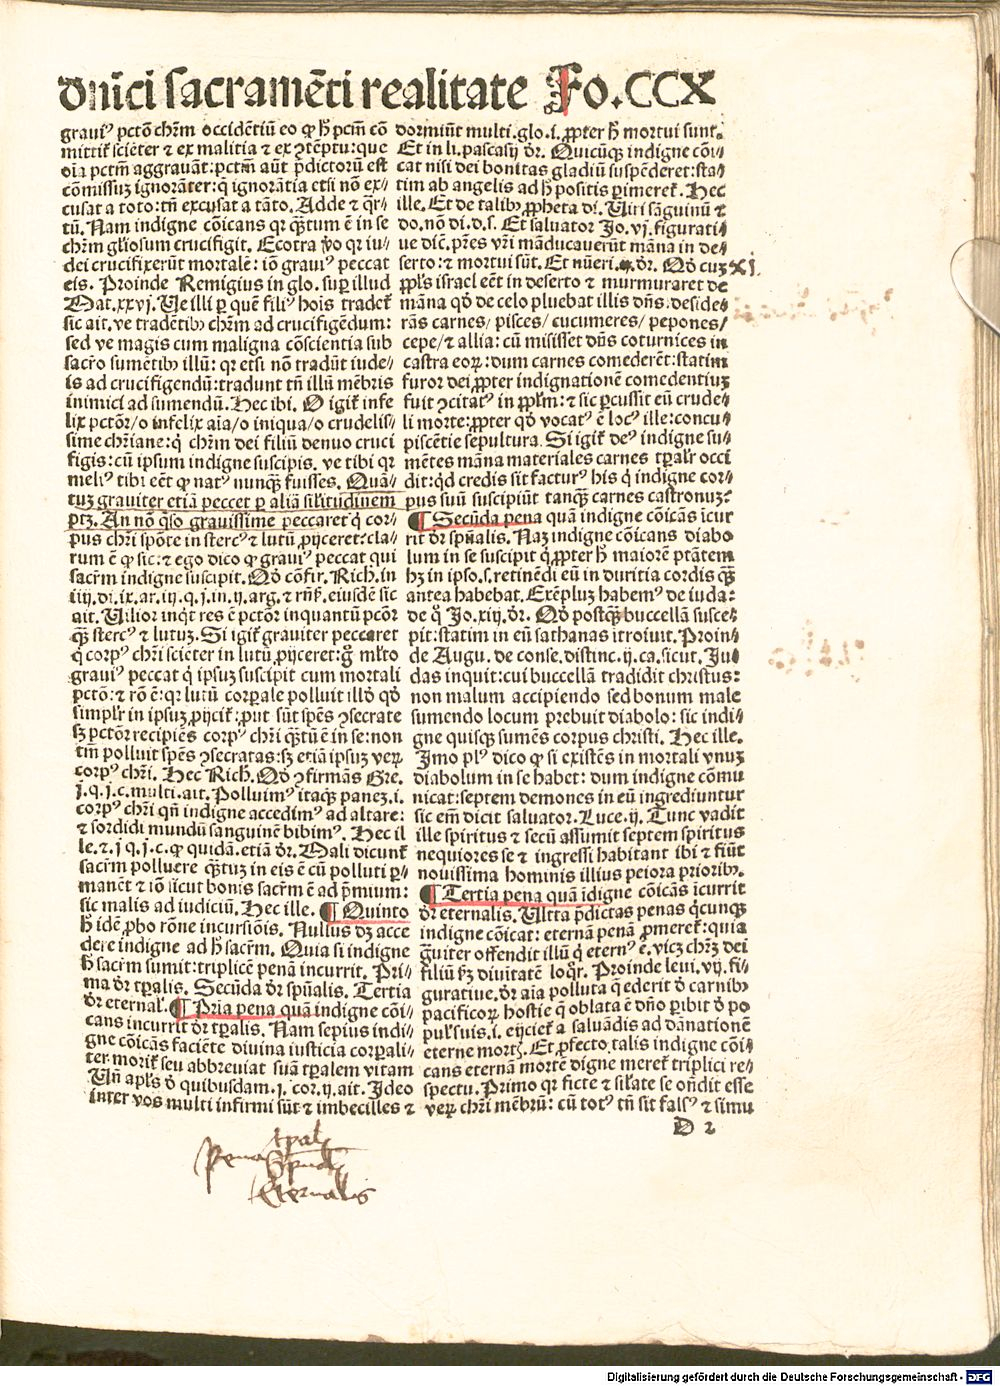 dnĩci sacramẽti realitate Fo.CCX
graviꝰ pctõ chr̃m occidẽtiũ eo ꝙ ħ pcm̃ cõ
mittit᷑ sciẽter ⁊ ex malitia ⁊ ex ꝯtẽptu: que
oĩa pctm̃ aggrauãt: pctm̃ aũt p̃dictorũ est
cõmissuꝫ ignorãter: q̃ ignorãtia etsi nõ ex⸗
cusat a toto: tñ excusat a tãto. Adde ⁊ q̃r⸗
tũ. Nam indigne cõicans qr qͣꝫtum ẽ in se
chr̃m gl̃iosum crucifigit. Ecotra ꝟo qr iu⸗
dei crucifixerũt mortalẽ: iõ graviꝰ peccat
eis. Proinde Remigius in glo. suꝑ illud
Mat. xxvj. Ve illi ꝑ quẽ filiꝰ hois tradet᷑
sic ait. ve tradẽtibꝫ chr̃m ad crucifigẽdum:
sed ve magis cum maligna cõscientia sub
sacr̃o sumẽtibꝫ illũ: qr etsi nõ tradũt iude⸗
is ad crucifigendũ: tradunt tñ illũ mẽbris
inimici ad sumendũ. Hec ibi. O igit᷑ infe
lix pctõr/o infelix aĩa/o iniqua/o crudelis⸗
sime chr̃iane: q̃ chr̃m dei filiũ denuo cruci
figis: cũ ipsum indigne suscipis. ve tibi qr
meliꝰ tibi eẽt ꝙ natꝰ nunqͣꝫ fuisses. Quã⸗
tuꝫ graviter etiã peccet ꝑ aliã silĩtudinem
ptꝫ. An nõ q̃so gravissime peccaret q̃ cor⸗
pus chr̃i spõte in stercꝰ ⁊ lutũ ꝓijceret: cla⸗
rum ẽ ꝙ sic: ⁊ ego dico ꝙ graviꝰ peccat qui
sacr̃m indigne suscipit. Qd̃ cõfir. Rich. in
iiij. di. ix. ar. iij. q. j. in ij. arg. ⁊ rñs̃. eiusdẽ sic
ait. Vilior inqͥt res ẽ pctõr inquantũ pcõr
qͣꝫ stercꝰ ⁊ lutuꝫ. Si igit᷑ graviter peccaret
q̃ corpꝰ chr̃i sciẽter in lutũ ꝓijceret: g̃ ml̃to
graviꝰ peccat q̃ ipsuꝫ suscipit cum mortali
pctõ: ⁊ rõ ẽ: qr lutũ corꝑale polluit illd̓ qd̓
simpl̃r in ipsuꝫ ꝓijcit᷑: put sũt spẽs ꝯsecrate
sꝫ pctõr recipiẽs corpꝰ chr̃i qͣꝫtũ ẽ in se: non
tm̃ polluit spẽs ꝯsecratas: sꝫ etiã ipsuꝫ veꝝ
corpꝰ chr̃i. Hec Rich. Qd̓ ꝯfirmãs Gre.
j. q. j. c. multi. ait. Polluimꝰ itaqꝫ paneꝫ. i.
corpꝰ chr̃i qñ indigne accedimꝰ ad altare:
⁊ sordidi mundũ sanguinẽ bibimꝰ. Hec il
le. ⁊. j q. j. c. ꝙ quidã. etiã dr̃. Mali dicunt᷑
sacr̃m polluere qͣꝫtuꝫ in eis ẽ cũ polluti ꝑ⸗
manẽt ⁊ iõ sicut bonis sacr̃m ẽ ad p̃mium:
sic malis ad iudiciũ. Hec ille. ¶ Quinto
ħ idẽ ꝓbo rõne incursiõis. Nullus dꝫ acce
dere indigne ad ħ sacr̃m. Quia si indigne
ħ sacr̃m sumit: triplicẽ penã incurrit. Pri⸗
ma dr̃ tꝑalis. Secũda dr̃ spũalis. Tertia
dr̃ eternal᷑. ¶ Pria pena quã indigne cõi⸗
cans incurrit dr̃ tꝑalis. Nam sepius indi⸗
gne cõicãs faciẽte divina iusticia corꝑali⸗
ter morit᷑ seu abbreviat suã tꝑalem vitam
Vñ apl̃s d̓ quibusdam. j. cor. ij. ait. Ideo
inter vos multi infirmi sũt ⁊ imbecilles ⁊
dormiũt multi. glo. i. ꝓpter ħ mortui sunt.
Et in li. pascasij dr̃. Quicũqꝫ indigne cõi⸗
cat nisi dei bonitas gladiũ suspẽderet: sta⸗
tim ab angelis ad ħ positis ꝑimeret᷑. Hec
ille. Et de talibꝫ ꝓpheta di. Viri sãguinũ ⁊
do. nõ di. d. s. Et salvator Jo. vj. figurati⸗
ue dic̃. pr̃es vr̃i mãducauerũt mãna in de⸗
serto: ⁊ mortui sũt. Et nũeri. dr̃. Qd̓ cuꝫ
XI.
ppl̃s israel eẽt in deserto ⁊ murmuraret de
mãna qd̓ de celo pluebat illis dñs. deside⸗
rãs carnes/ pisces/ cucumeres/ pepones/
cepe/ ⁊ allia: cũ misisset dñs coturnices in
castra eoꝝ: dum carnes comederẽt: statim
furor dei ꝓpter indignationẽ comedentiuꝫ
fuit ꝯcitatꝰ in ppl̃m: ⁊ sic ꝑcussit eũ crude⸗
li morte: ꝓpter qd̓ vocatꝰ ẽ locꝰ ille: concu⸗
piscẽtie sepultura. Si igit᷑ deꝰ indigne su⸗
mẽtes mãna materiales carnes tꝑal̃r occi
dit: qͥd credis sit facturꝰ his q̃ indigne cor⸗
pus suũ suscipiũt tanqͣꝫ carnes castronuꝫ?
¶ Secũda pena quã indigne cõicãs ĩcur
rit dr̃ spũalis. Naꝫ indigne cõicans diabo
lum in se suscipit q̃ ꝓpter ħ maiorẽ ptãtem
hꝫ in ipso. s. retinẽdi eũ in duritia cordis qͣꝫ
antea habebat. Exẽpluꝫ habemꝰ de iuda:
de qͦ Jo. xiij. dr̃. Qd̓ postqͣꝫ buccellã susce⸗
pit: statim in eũ sathanas ĩtroiuit. Proin⸗
de Augu. de conse. distinc. ij. ca. sicut. Ju⸗
das inquit: cui buccellã tradidit christus:
non malum accipiendo sed bonum male
sumendo locum prebuit diabolo: sic indi⸗
gne quisqꝫ sumẽs corpus christi. Hec ille.
Imo plꝰ dico ꝙ si existẽs in mortali vnuꝫ
diabolum in se habet: dum indigne cõmu
nicat: septem demones in eũ ingrediuntur
sic em̃ dicit salvator. Luce. ij. Tunc vadit
ille spiritus ⁊ secũ assumit septem spiritus
nequiores se ⁊ ingressi habitant ibi ⁊ fiũt
novissima hominis illius peiora prioribꝫ.
¶ Tertia pena quã ĩdigne cõicãs ĩcurrit
dr̃ eternalis. Ultta p̃dictas penas q̃cunqꝫ
indigne cõicat: eternã penã ꝓmeret᷑: quia
g̃uiter offendit illũ q̃ eternꝰ ẽ. viꝫ chr̃ꝫ dei
filiũ ẜꝫ diuĩtatẽ loq̃r. Proinde leui. vij. fi⸗
gurative. dr̃ aĩa polluta q̃ ederit d̓ carnibꝫ
pacificoꝝ hostie q̃ oblata ẽ dño ꝑibit d̓ po
pul̃ suis. i. eijciet᷑ a saluãdis ad dãnationẽ
eterne mort̃. Et ꝓfecto talis indigne cõi⸗
cans eternã mortẽ digne meret᷑ triplici re⸗
spectu. Primo qr ficte ⁊ sil̃ate se oñdit esse
veꝝ chr̃i mẽbrũ: cũ totꝰ tñ sit falsꝰ ⁊ simu
D 2
tpal
Pena spual
Eternalis
Digitalisierung gefördert durch die Deutsche Forschungsgemeinschaft - DFG